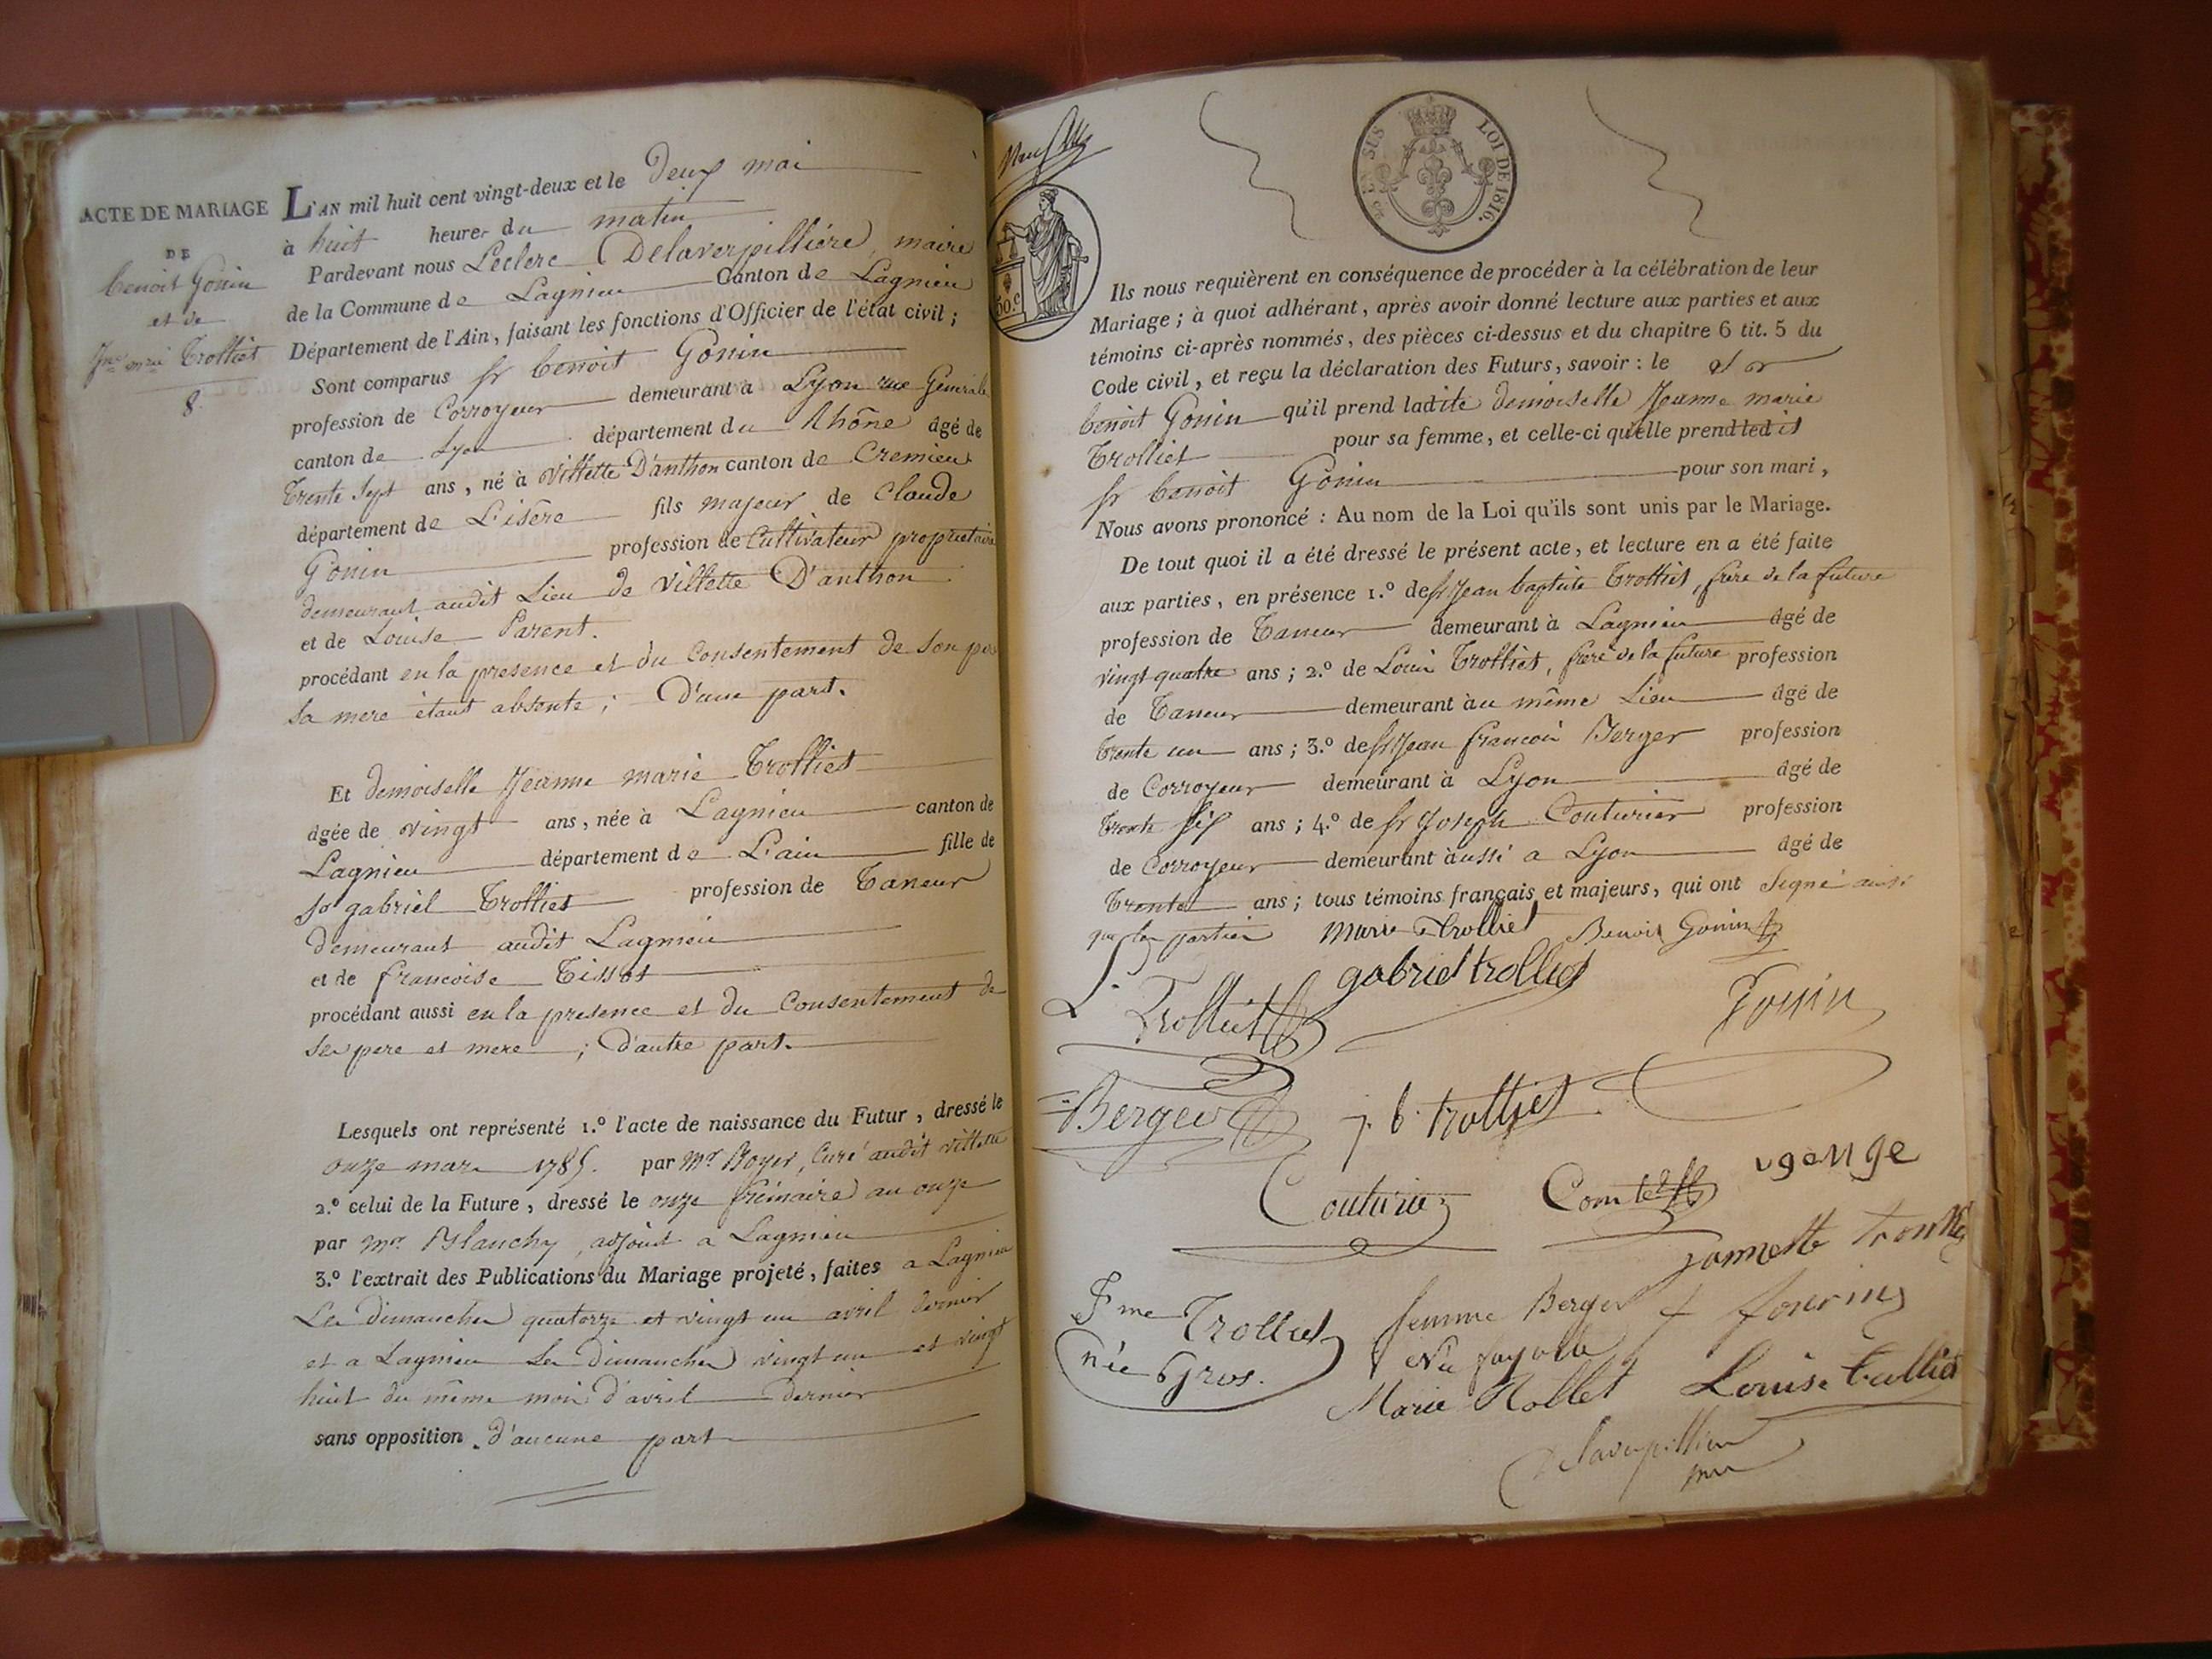 ACTE DE MARIAGE
DE
benoit Gonin
et de
Jne mrie Trolliet
8.
L'AN mil huit cent vingt-deux et le deux mai
à huit heures du matin
Pardevant nous Leclerc Delaverpillière, maire
de la Commune de Lagnieu Canton de Lagnieu
Département de l'Ain, faisant les fonctions d'Officier de l'état civil;
Sont comparus sr benoit Gonin
profession de Corroyeur demeurant a Lyon rue Generale
canton de Lyon département du Rhône âgé de
trente sept ans, né à Villette D'anthon canton de Cremieu
département de L'isère fils majeur de Claude
Gonin profession de Cultivateur propriétaire
demeurant audit Lieu de Villette D'anthon
et de Louise Parent.
procédant en la presence et du Consentement de Son pere
Sa mere étant absente; D'une part.
Et demoiselle Jeanne marie Trolliet
âgée de vingt ans, née à Lagnieu canton de
Lagnieu département de L'ain fille de
sr gabriel Trolliet profession de Taneur
demeurant audit Lagnieu
et de francoise Tissot
procédant aussi en la presence et du Consentement de
Ses pere et mere; D'autre part.
Lesquels ont représenté 1.º l'acte de naissance du Futur, dressé le
onze mars 1785. par Mr Boyer, Curé audit villette
2.º celui de la Future, dressé le onze frimaire an onze
par mr. Blanchy, adjoint a Lagnieu
3.º l'extrait des Publications du Mariage projeté, faites a Lagnieu
Les dimanches quatorze et vingt un avril dernier
et a Lagnieu Les Dimanches vingt un et vingt
huit du même mois d'avril dernier
sans opposition d'aucune part
EN SUS
LOI DE 1816.
50.c
Ils nous requièrent en conséquence de procéder à la célébration de leur
Mariage; à quoi adhérant, après avoir donné lecture aux parties et aux
témoins ci-après nommés, des pièces ci-dessus et du chapitre 6 tit. 5 du
Code civil, et reçu la déclaration des Futurs, savoir: le Sr
benoit Gonin qu'il prend ladite demoiselle Jeanne marie
Trolliet pour sa femme, et celle-ci qu'elle prend ledit
sr benoit Gonin pour son mari,
Nous avons prononcé: Au nom de la Loi qu'ils sont unis par le Mariage.
De tout quoi il a été dressé le présent acte, et lecture en a été faite
aux parties, en présence 1.º de sr Jean baptiste Trolliet, frère de la future
profession de Taneur demeurant à Lagnieu âgé de
vingt quatre ans; 2.º de Louis Trolliet, frere de la future profession
de Taneur demeurant au même Lieu âgé de
trente un ans; 3.º de sr Jean francois Berger profession
de Corroyeur demeurant à Lyon âgé de
trente six ans; 4.º de sr Joseph Couturier profession
de Corroyeur demeurant aussi a Lyon âgé de
Trente ans; tous témoins français et majeurs, qui ont Signé ainsi
que les parties marie trolliet Benoit Gonin
gabriel trolliet
L. Trolliet Gonin
Berger j. b. trolliet
Couturier Comte
Fme Trolliet
née Gros.
femme Berger
née fayolle
Marie Rollet Louise trolliet
Delaverpillière